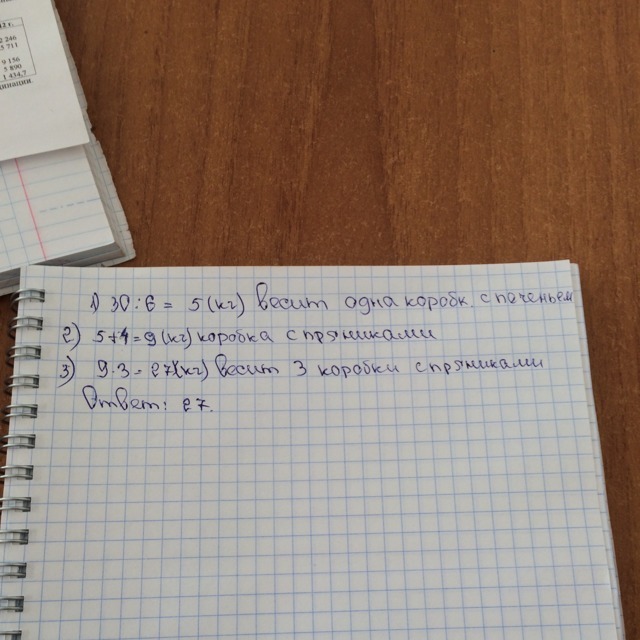 2 г.
2 246
5 711
9 156
5 890
1 434,7
1) 30 : 6 = 5 (кг) весит одна коробк. с печеньем
2) 5+4=9 (кг) коробка с пряниками
3) 9·3=27(кг) весит 3 коробки с пряниками
Ответ: 27.